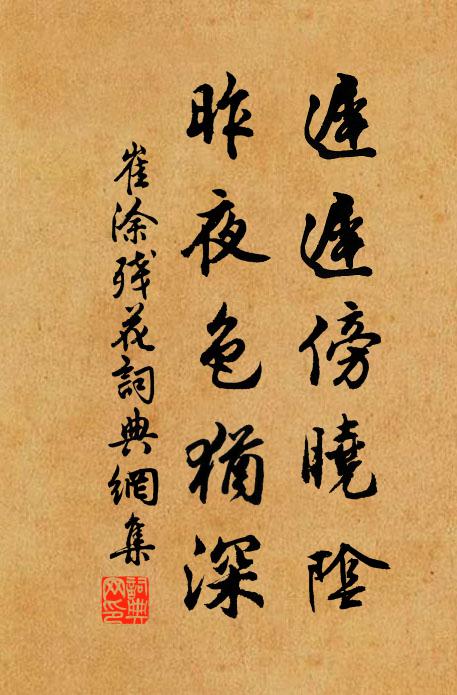 遲遲傍曉陰
昨夜色猶深
崔涂殘花詞典網集
詞典網印